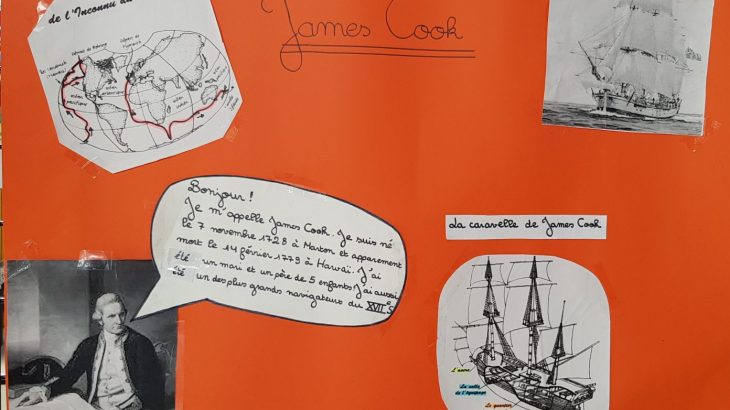 de l'Inconnu au
James Cook
océan pacifique
océan atlantique
océan indien
Bonjour !
Je m'appelle James Cook. Je suis né
le 7 novembre 1728 à Marton et apparement
mort le 14 février 1779 à Hawaï. J'ai
été un mari et un père de 5 enfants. J'ai aussi
été un des plus grands navigateurs du XVIIe S
La caravelle de James Cook
L'ancre
La salle
de l'équipage